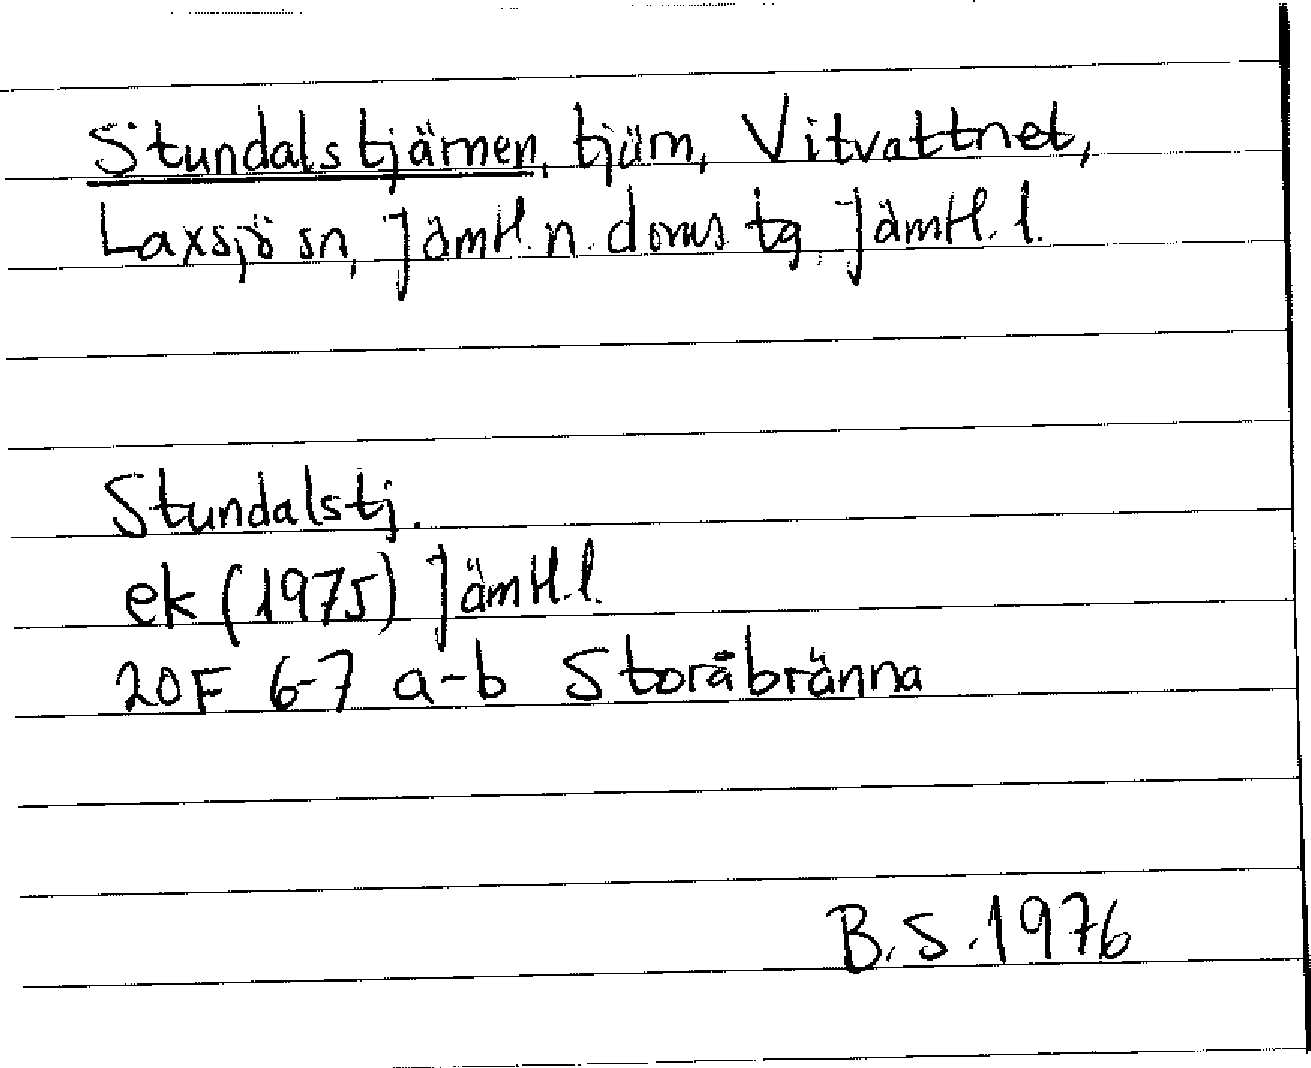 Stundalstjärnen, tjärn, Vitvattnet,
Laxsjö sn, Jämtl. n. doms. tg, Jämtl. l.
Stundalstj.
ek (1975) Jämtl. l.
20F 6-7 a-b Storåbränna
B. S. 1976